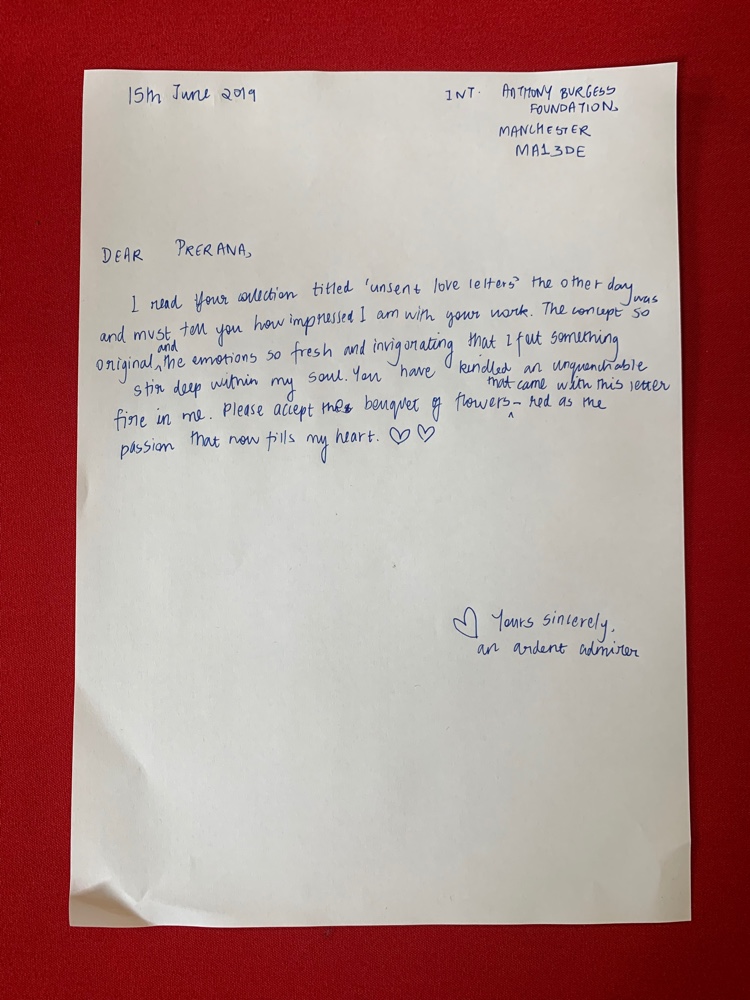 15th June 2019
INT. ANTHONY BURGESS
FOUNDATION,
MANCHESTER
MA13DE
DEAR PRERANA,
I read your collection titled 'unsent love letters' the other day
and must tell you how impressed I am with your work. The concept was so
original, and the emotions so fresh and invigorating that I felt something
stir deep within my soul. You have kindled an unquenchable
fire in me. Please accept the bouquet of flowers that came with this letter – red as the
passion that now fills my heart. ♡♡
♡ Yours sincerely,
an ardent admirer